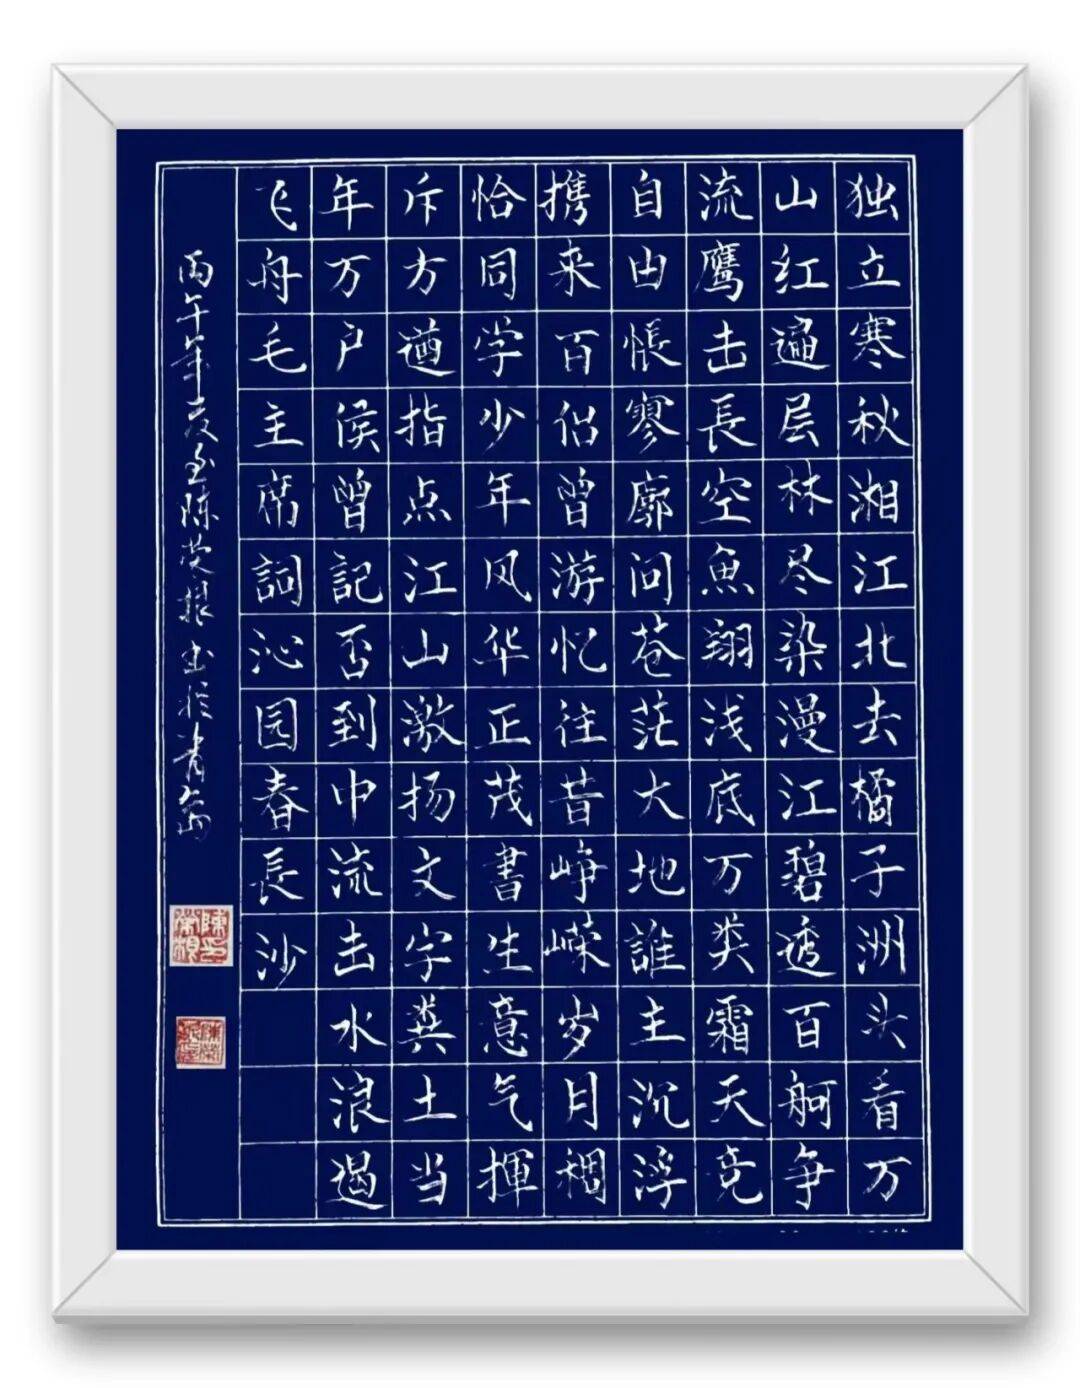 独立寒秋湘江北去橘子洲头看万
山红遍层林尽染漫江碧透百舸争
流鹰击長空魚翔浅底万类霜天竞
自由悵寥廓问苍茫大地誰主沉浮
携来百侣曾游忆往昔峥嵘岁月稠
恰同学少年风华正茂書生意气揮
斥方遒指点江山激扬文字粪土当
年万户侯曾記否到中流击水浪遏
飞舟毛主席詞沁园春長沙
丙午年夏至陈荣根书於青